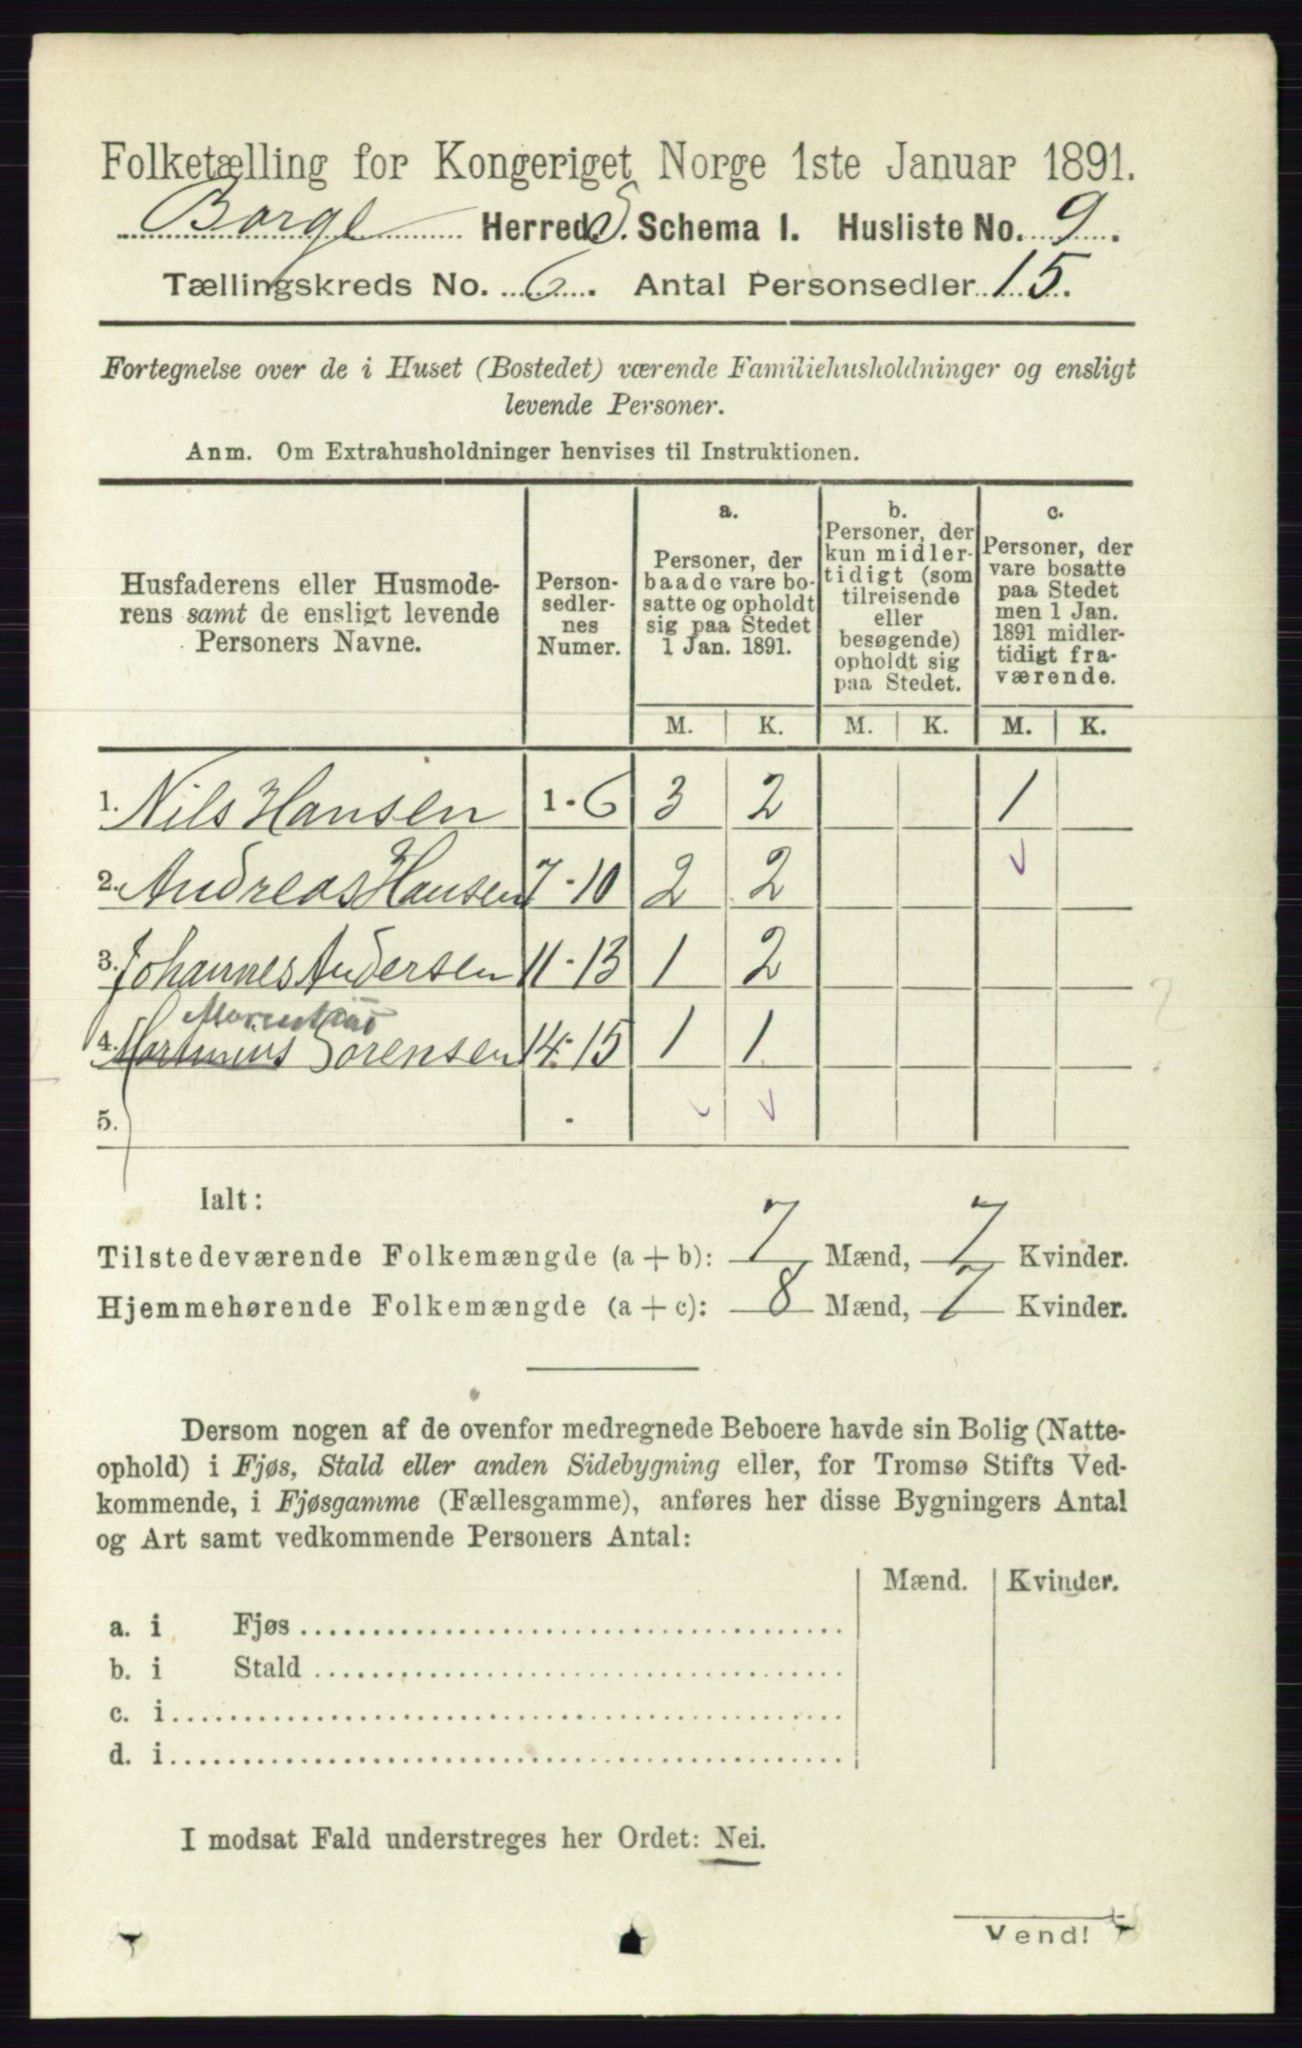 Folketælling for Kongeriget Norge 1ste Januar 1891.
Borge Herreds. Schema I. Husliste No. 9.
Tællingskreds No. 6. Antal Personsedler 15.
Fortegnelse over de i Huset (Bostedet) værende Familiehusholdninger og ensligt
levende Personer.
Anm. Om Extrahusholdninger henvises til Instruktionen.
Husfaderens eller Husmode-
rens samt de ensligt levende
Personers Navne.
Person-
sedler-
nes
Numer.
a.
Personer, der
baade vare bo-
satte og opholdt
sig paa Stedet
1 Jan. 1891.
b.
Personer, der
kun midler-
tidigt (som
tilreisende
eller
besøgende)
opholdt sig
paa Stedet.
c.
Personer, der
vare bosatte
paa Stedet
men 1 Jan.
1891 midler-
tidigt fra-
værende.
M. K. M. K. M. K.
1. Nils Hansen 1 - 6 3 2 1
2. Andreas Hansen 7 - 10 2 2
3. Johannes Andersen 11 - 13 1 2
4. Martinius Sørensen 14 - 15 1 1
5. -
Ialt:
Tilstedeværende Folkemængde (a + b): 7 Mænd, 7 Kvinder.
Hjemmehørende Folkemængde (a + c): 8 Mænd, 7 Kvinder.
Dersom nogen af de ovenfor medregnede Beboere havde sin Bolig (Natte-
ophold) i Fjøs, Stald eller anden Sidebygning eller, for Tromsø Stifts Ved-
kommende, i Fjøsgamme (Fællesgamme), anføres her disse Bygningers Antal
og Art samt vedkommende Personers Antal:
Mænd. Kvinder.
a. i Fjøs
b. i Stald
c. i
d. i
I modsat Fald understreges her Ordet: Nei.
Vend!